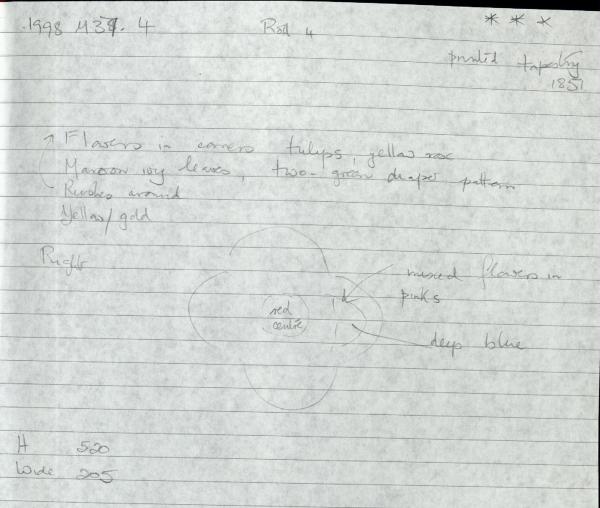 1998 M39. 4 Roll 4 * * *
printed tapestry
1851
Flowers in corners tulips, yellow rose
Maroon ivy leaves, two-green diaper pattern
Rushes around
Yellow/gold
Right
mixed flowers in
pinks
red
centre
deep blue
H 520
Wide 205